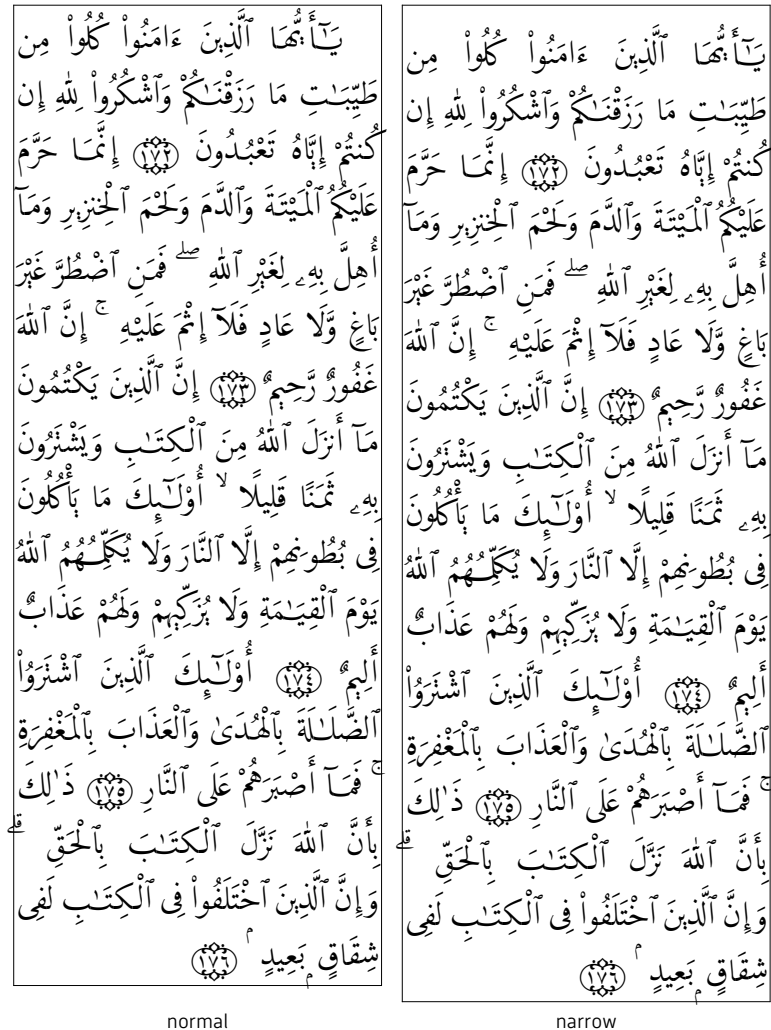 يَـٰٓأَيُّهَا ٱلَّذِينَ ءَامَنُوا۟ كُلُوا۟ مِن
طَيِّبَـٰتِ مَا رَزَقْنَـٰكُمْ وَٱشْكُرُوا۟ لِلَّهِ إِن
كُنتُمْ إِيَّاهُ تَعْبُدُونَ ۝١٧٢ إِنَّمَا حَرَّمَ
عَلَيْكُمُ ٱلْمَيْتَةَ وَٱلدَّمَ وَلَحْمَ ٱلْخِنزِيرِ وَمَآ
أُهِلَّ بِهِۦ لِغَيْرِ ٱللَّهِ ۖ فَمَنِ ٱضْطُرَّ غَيْرَ
بَاغٍ وَّلَا عَادٍ فَلَآ إِثْمَ عَلَيْهِ ۚ إِنَّ ٱللَّهَ
غَفُورٌ رَّحِيمٌ ۝١٧٣ إِنَّ ٱلَّذِينَ يَكْتُمُونَ
مَآ أَنزَلَ ٱللَّهُ مِنَ ٱلْكِتَـٰبِ وَيَشْتَرُونَ
بِهِۦ ثَمَنًا قَلِيلًا ۙ أُو۟لَـٰٓئِكَ مَا يَأْكُلُونَ
فِى بُطُونِهِمْ إِلَّا ٱلنَّارَ وَلَا يُكَلِّمُهُمُ ٱللَّهُ
يَوْمَ ٱلْقِيَـٰمَةِ وَلَا يُزَكِّيهِمْ وَلَهُمْ عَذَابٌ
أَلِيمٌ ۝١٧٤ أُو۟لَـٰٓئِكَ ٱلَّذِينَ ٱشْتَرَوُا۟
ٱلضَّلَـٰلَةَ بِٱلْهُدَىٰ وَٱلْعَذَابَ بِٱلْمَغْفِرَةِ
ۚ فَمَآ أَصْبَرَهُمْ عَلَى ٱلنَّارِ ۝١٧٥ ذَٰلِكَ
بِأَنَّ ٱللَّهَ نَزَّلَ ٱلْكِتَـٰبَ بِٱلْحَقِّ ۗ
وَإِنَّ ٱلَّذِينَ ٱخْتَلَفُوا۟ فِى ٱلْكِتَـٰبِ لَفِى
شِقَاقٍۭ بَعِيدٍ ۝١٧٦
normal
يَـٰٓأَيُّهَا ٱلَّذِينَ ءَامَنُوا۟ كُلُوا۟ مِن
طَيِّبَـٰتِ مَا رَزَقْنَـٰكُمْ وَٱشْكُرُوا۟ لِلَّهِ إِن
كُنتُمْ إِيَّاهُ تَعْبُدُونَ ۝١٧٢ إِنَّمَا حَرَّمَ
عَلَيْكُمُ ٱلْمَيْتَةَ وَٱلدَّمَ وَلَحْمَ ٱلْخِنزِيرِ وَمَآ
أُهِلَّ بِهِۦ لِغَيْرِ ٱللَّهِ ۖ فَمَنِ ٱضْطُرَّ غَيْرَ
بَاغٍ وَّلَا عَادٍ فَلَآ إِثْمَ عَلَيْهِ ۚ إِنَّ ٱللَّهَ
غَفُورٌ رَّحِيمٌ ۝١٧٣ إِنَّ ٱلَّذِينَ يَكْتُمُونَ
مَآ أَنزَلَ ٱللَّهُ مِنَ ٱلْكِتَـٰبِ وَيَشْتَرُونَ
بِهِۦ ثَمَنًا قَلِيلًا ۙ أُو۟لَـٰٓئِكَ مَا يَأْكُلُونَ
فِى بُطُونِهِمْ إِلَّا ٱلنَّارَ وَلَا يُكَلِّمُهُمُ ٱللَّهُ
يَوْمَ ٱلْقِيَـٰمَةِ وَلَا يُزَكِّيهِمْ وَلَهُمْ عَذَابٌ
أَلِيمٌ ۝١٧٤ أُو۟لَـٰٓئِكَ ٱلَّذِينَ ٱشْتَرَوُا۟
ٱلضَّلَـٰلَةَ بِٱلْهُدَىٰ وَٱلْعَذَابَ بِٱلْمَغْفِرَةِ
ۚ فَمَآ أَصْبَرَهُمْ عَلَى ٱلنَّارِ ۝١٧٥ ذَٰلِكَ
بِأَنَّ ٱللَّهَ نَزَّلَ ٱلْكِتَـٰبَ بِٱلْحَقِّ ۗ
وَإِنَّ ٱلَّذِينَ ٱخْتَلَفُوا۟ فِى ٱلْكِتَـٰبِ لَفِى
شِقَاقٍۭ بَعِيدٍ ۝١٧٦
narrow